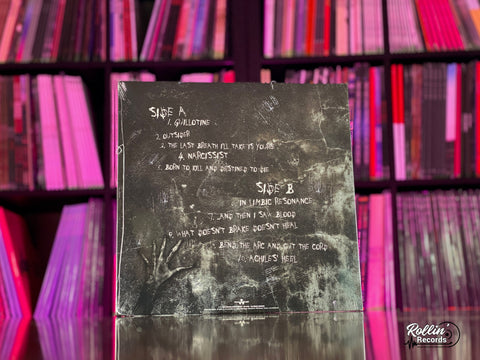 SIDE A
1. GUILLOTINE
2. OUTSIDER
3. THE LAST BREATH I'LL TAKE IS YOURS
4. NARCISSIST
5. BORN TO KILL AND DESTINED TO DIE
SIDE B
IN LIMBIC RESONANCE
7. ...AND THEN I SAW BLOOD
8. WHAT DOESN'T BRAKE DOESN'T HEAL
BEND THE ARC AND CUT THE CORD
10. ACHILES' HEEL
Rollin'
Records